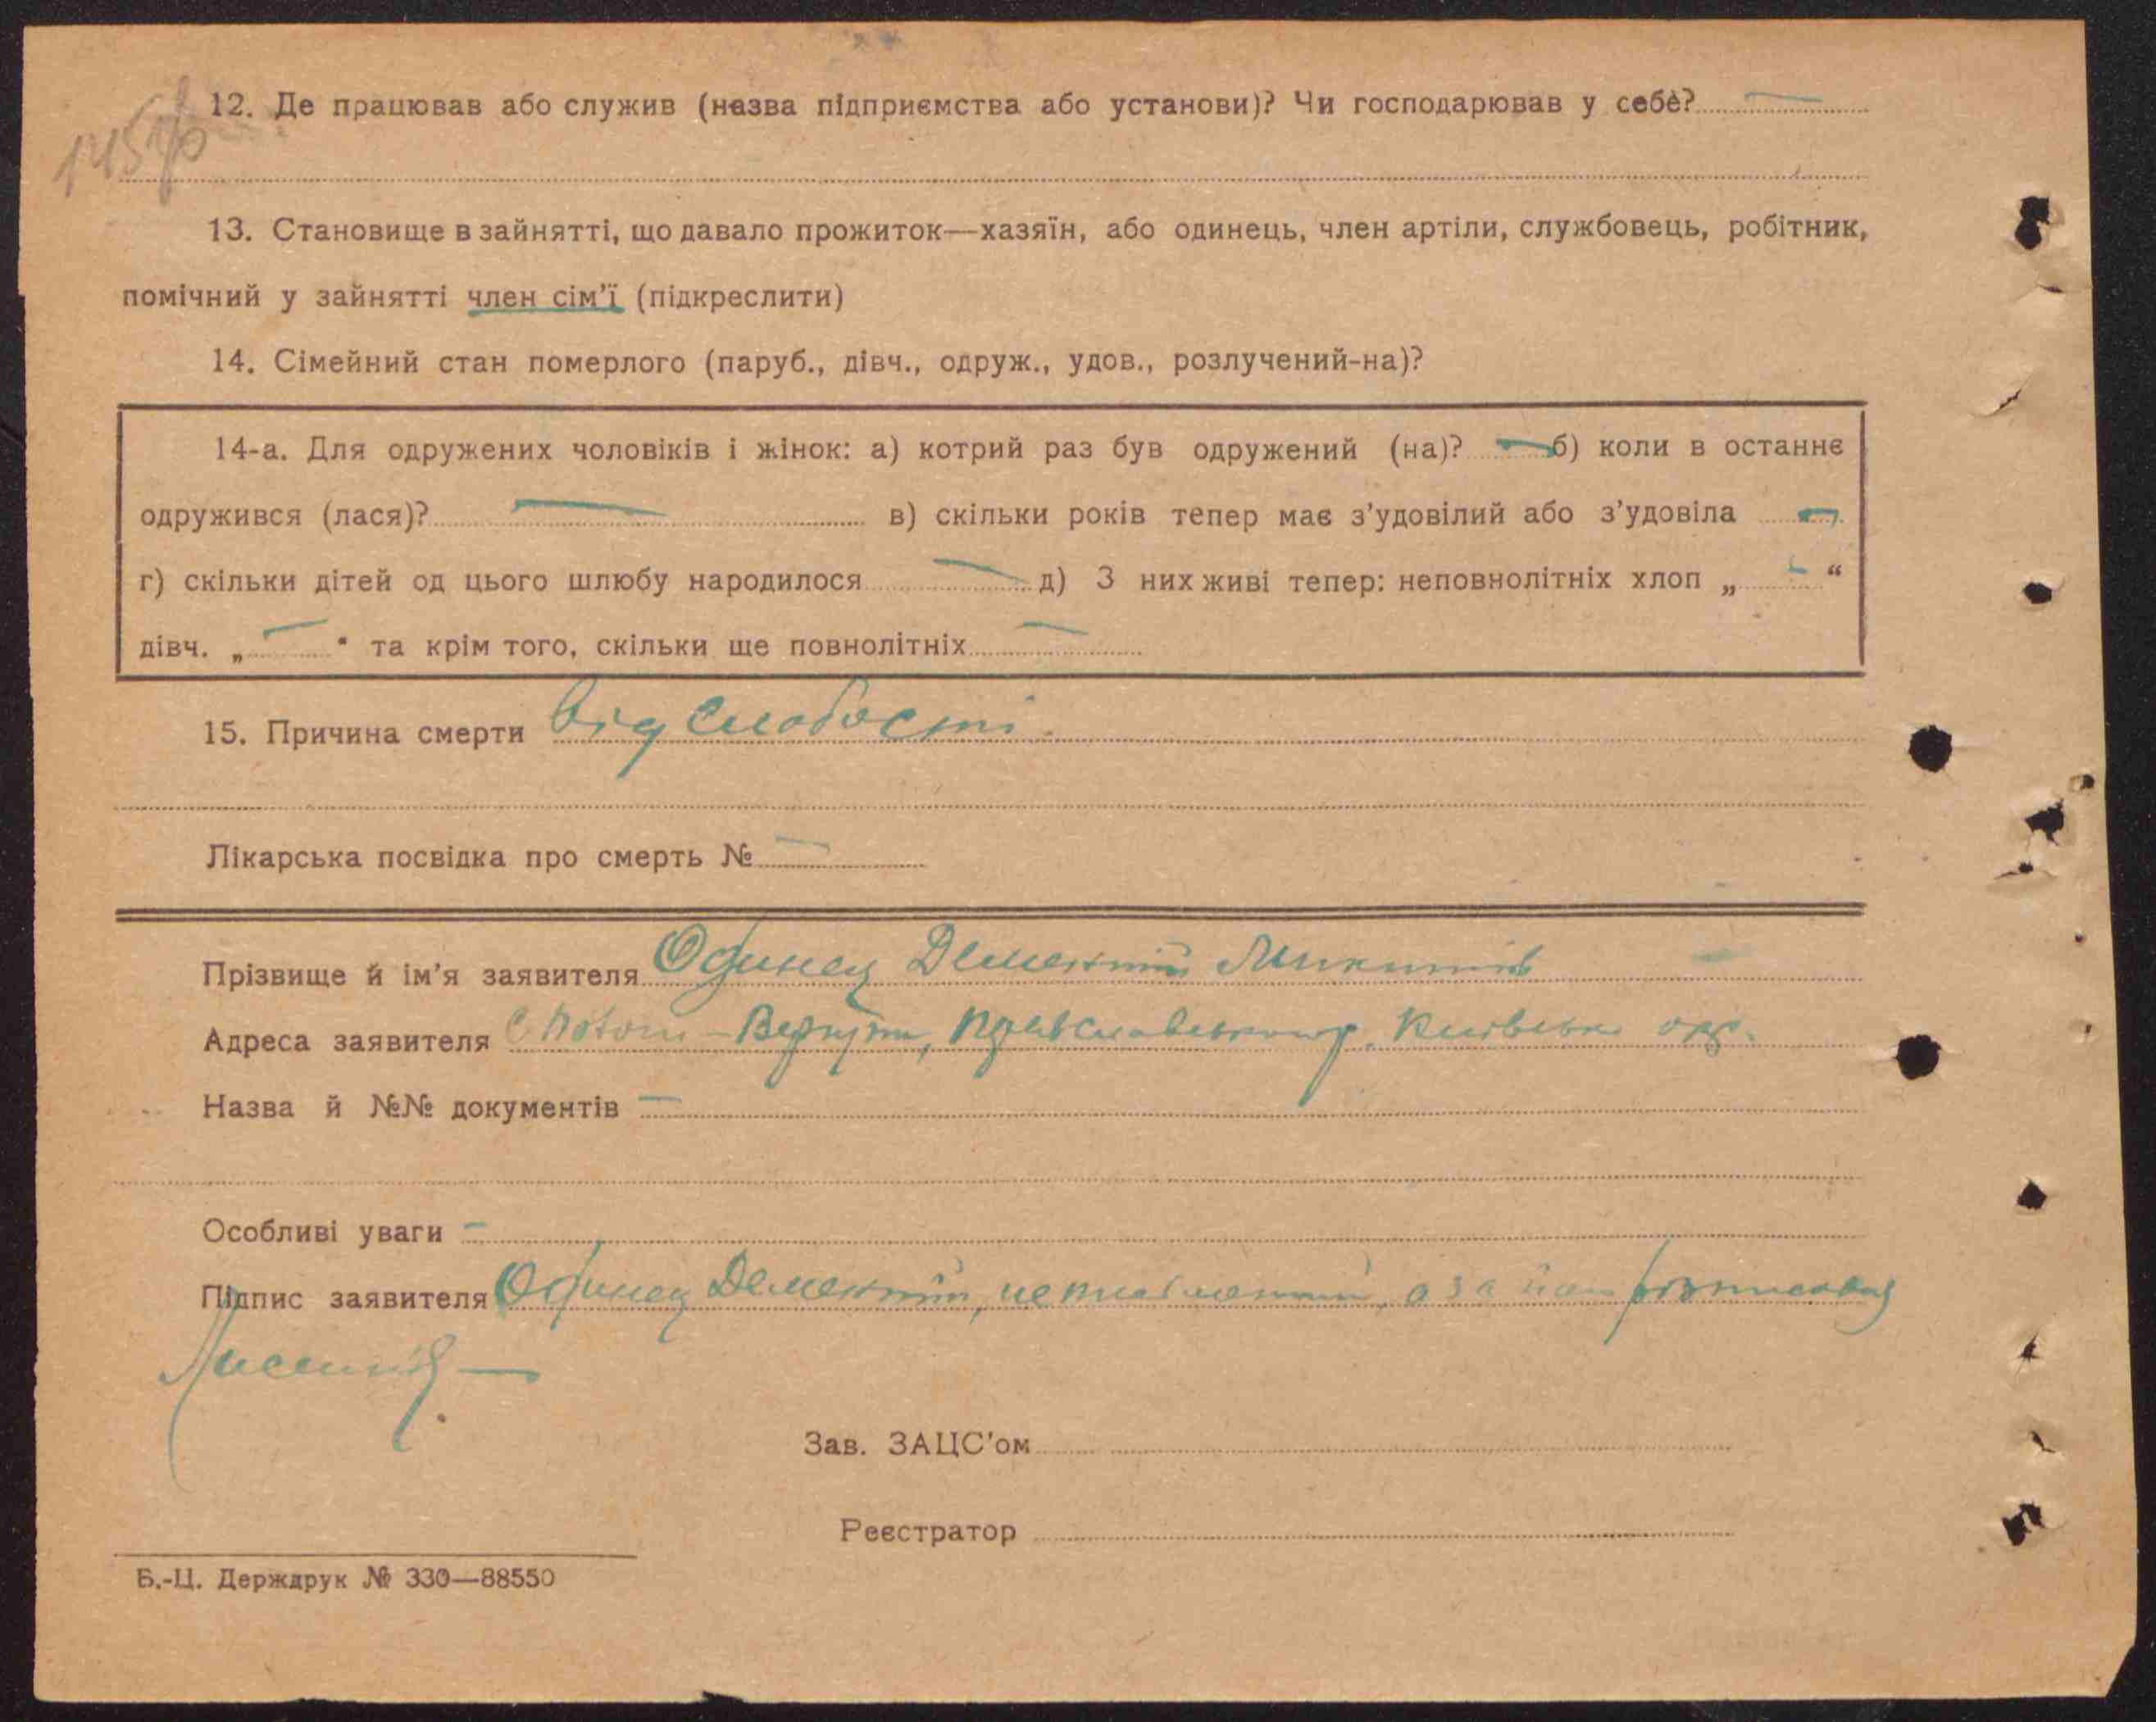 12. Де працював або служив (назва підприємства або установи)? Чи господарював у себе? —
13. Становище в зайнятті, що давало прожиток—хазяїн, або одинець, член артіли, службовець, робітник,
помічний у зайнятті член сім'ї (підкреслити)
14. Сімейний стан померлого (паруб., дівч., одруж., удов., розлучений-на)?
14-а. Для одружених чоловіків і жінок: а) котрий раз був одружений (на)? — б) коли в останнє
одружився (лася)? — в) скільки років тепер має з'удовілий або з'удовіла —
г) скільки дітей од цього шлюбу народилося — д) З них живі тепер: неповнолітніх хлоп „ — “
дівч. „ — “ та крім того, скільки ще повнолітніх —
15. Причина смерти від слабості.
Лікарська посвідка про смерть № —
Прізвище й ім'я заявителя Одинец Дементий Микитів
Адреса заявителя с. Потоки
Назва й №№ документів —
Особливі уваги —
Підпис заявителя Одинец Дементий, неписьменний, а за його розписавсь
Зав. ЗАЦС'ом
Реєстратор
Б.-Ц. Держдрук № 330—88550